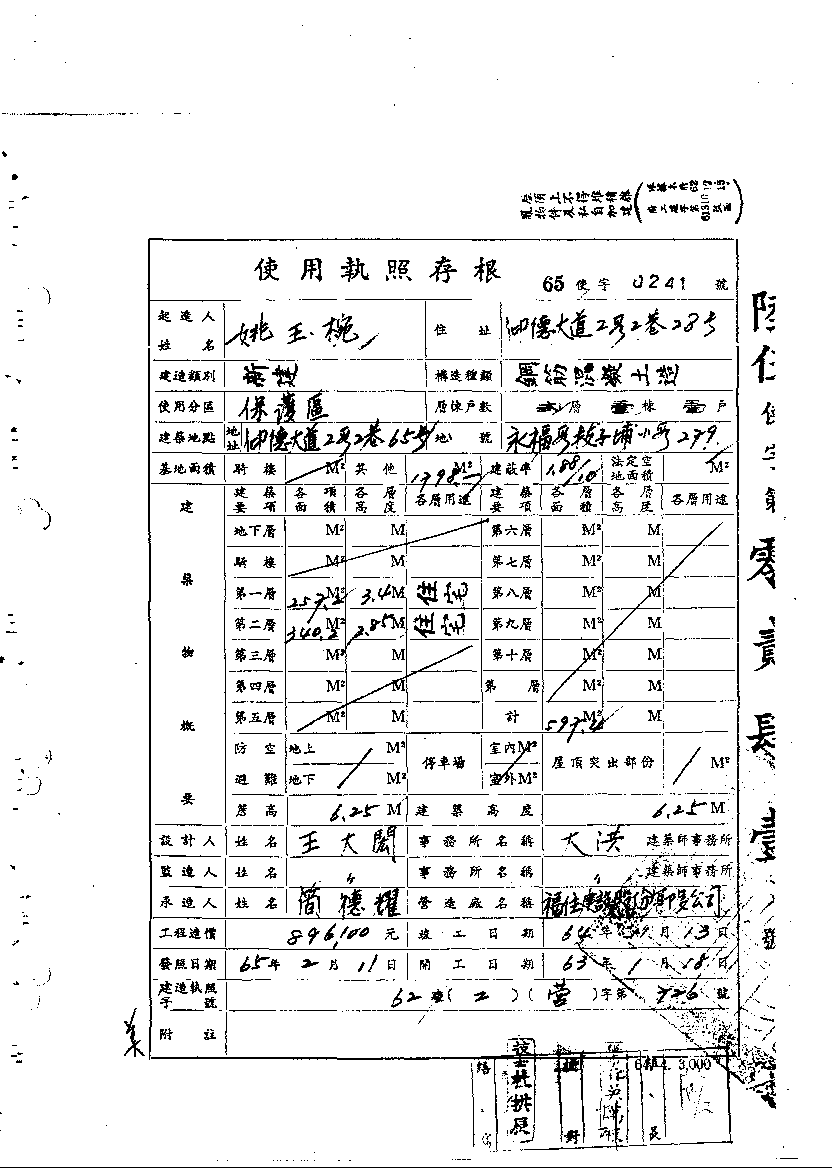 屋頂上不得堆積雜
物件及私自加建
使用執照存根
65 使字 0241 號
起造人姓名 姚王椀 住址 仰德大道2段2巷28号
建造類別 新建 構造種類 鋼筋混凝土造
使用分區 保護區 層棟戶數 層 棟 戶
建築地點 地址 仰德大道2段2巷65号 地號 永福段 小段 279
基地面積 騎樓 M² 其他 M² 建蔽率 1.88/10 法定空地面積 M²
建築物概要
建築要項 各項面積 各層高度 各層用途 建築要項 各層面積 各層高度 各層用途
地下層 M² M 第六層 M² M
騎樓 M² M 第七層 M² M
第一層 257.2 M² 3.4 M 住宅 第八層 M² M
第二層 340.2 M² 2.85 M 住宅 第九層 M² M
第三層 M² M 第十層 M² M
第四層 M² M 第 層 M² M
第五層 M² M 計 597.4 M²
防空避難 地上 M² 停車場 室內 M² 屋頂突出部份 M²
地下 室外 M²
簷高 6.25 M 建築高度 6.25 M
設計人 姓名 王大閎 事務所名稱 大洪 建築師事務所
監造人 姓名 〃 事務所名稱 〃 建築師事務所
承造人 姓名 簡德耀 營造廠名稱 福住建設股份有限公司
工程造價 896,100 元 竣工日期 64 年 11 月 13 日
發照日期 65 年 2 月 11 日 開工日期 63 年 1 月 18 日
建造執照字號 62 建(工)(營)字第 726 號
附註
陸伍使字第零貳肆壹號
64.4. 3,000
校對